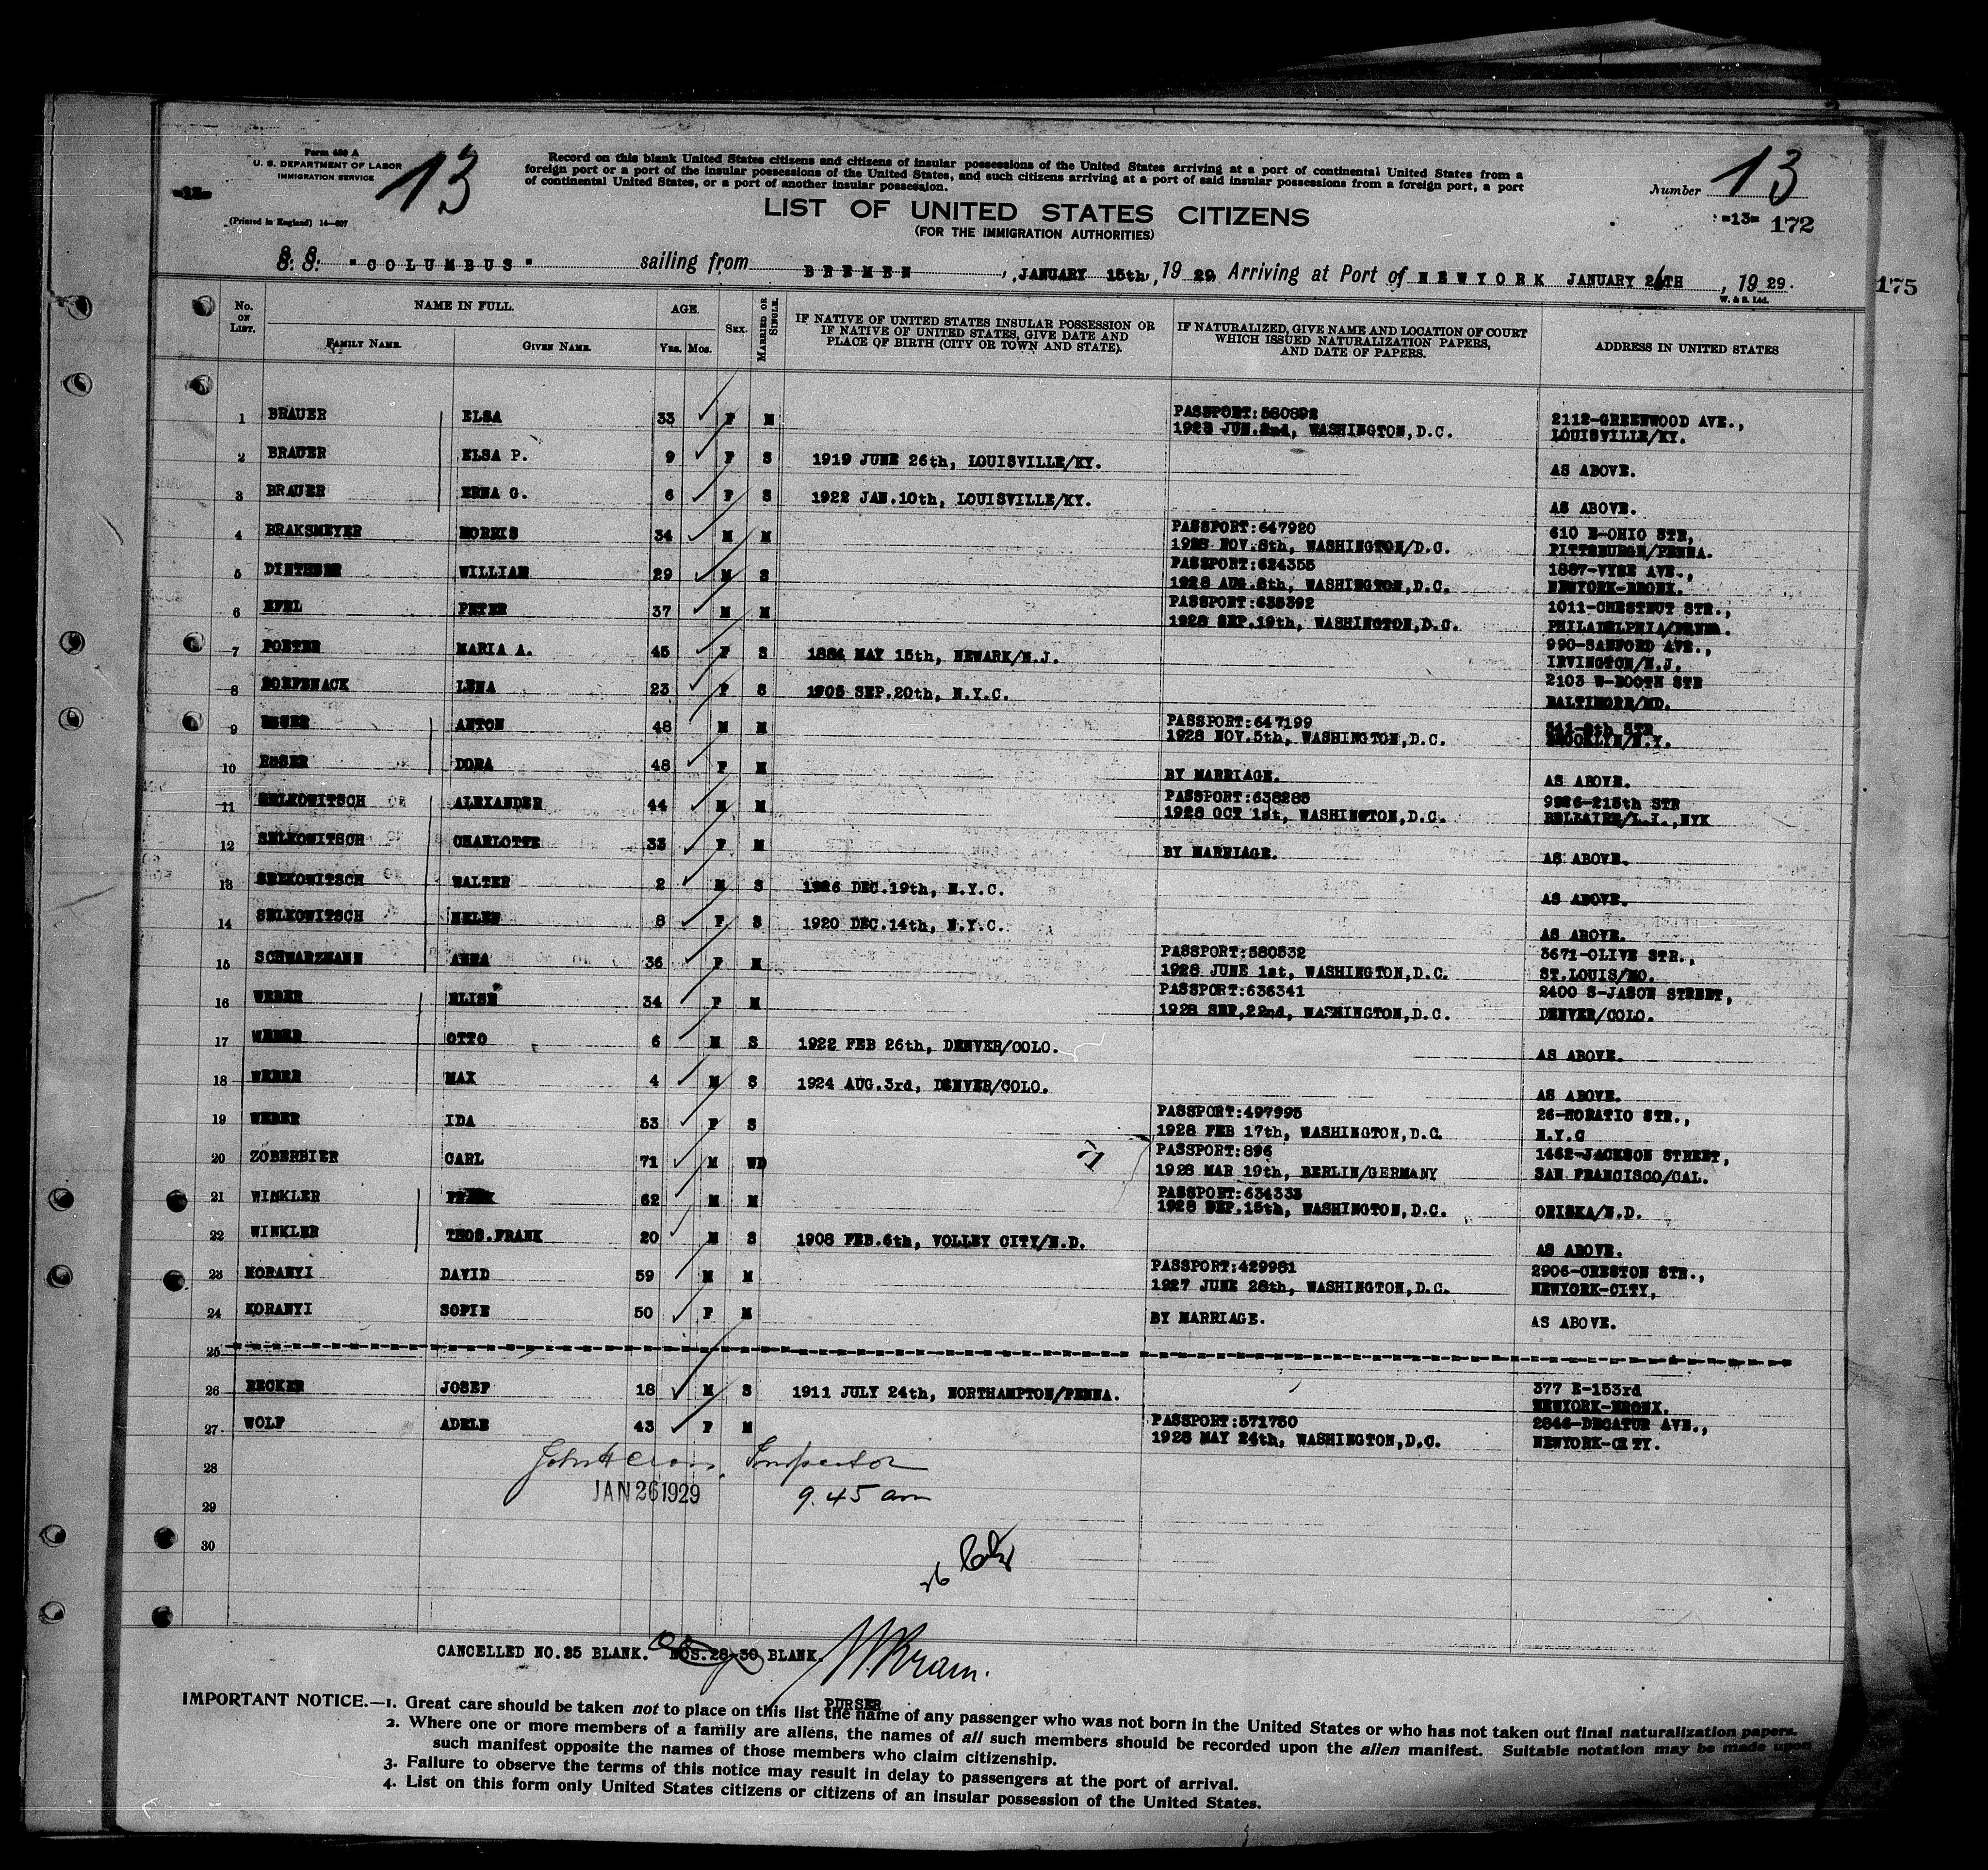 Form 630 A
U. S. DEPARTMENT OF LABOR
IMMIGRATION SERVICE
13
(Printed in England) 14—607
Record on this blank United States citizens and citizens of insular possessions of the United States arriving at a port of continental United States from a
foreign port or a port of the insular possessions of the United States, and such citizens arriving at a port of said insular possessions from a foreign port, a port
of continental United States, or a port of another insular possession.
Number 13
-13- 172
LIST OF UNITED STATES CITIZENS
(FOR THE IMMIGRATION AUTHORITIES)
S. S. "COLUMBUS" sailing from BREMEN, JANUARY 15th, 19 29 Arriving at Port of NEWYORK JANUARY 26TH, 19 29.
W. & S. Ltd.
175
No. ON LIST. NAME IN FULL. FAMILY NAME. GIVEN NAME. AGE. Yrs. Mos. SEX. MARRIED OR SINGLE. IF NATIVE OF UNITED STATES INSULAR POSSESSION OR IF NATIVE OF UNITED STATES, GIVE DATE AND PLACE OF BIRTH (CITY OR TOWN AND STATE). IF NATURALIZED, GIVE NAME AND LOCATION OF COURT WHICH ISSUED NATURALIZATION PAPERS, AND DATE OF PAPERS. ADDRESS IN UNITED STATES
1 BRAUER ELSA 33 F M PASSPORT:580892 2112-GREENWOOD AVE.,
1928 JUN.2nd, WASHINGTON,D.C. LOUISVILLE/KY.
2 BRAUER ELSA P. 9 F S 1919 JUNE 26th, LOUISVILLE/KY. AS ABOVE.
3 BRAUER ERNA G. 6 F S 1922 JAN.10th, LOUISVILLE/KY. AS ABOVE.
4 BRAKSMEYER MORRIS 34 M M PASSPORT:647920 610 E-OHIO STR,
1928 NOV.8th, WASHINGTON/D.C. PITTSBURGH/PENNA.
5 WILLIAM 29 M S PASSPORT:624355 1887-VYSE AVE.,
1928 AUG.8th, WASHINGTON,D.C. NEWYORK-BRONX.
6 EFEL PETER 37 M M PASSPORT:635392 1011-CHESTNUT STR.,
1928 SEP.19th, WASHINGTON,D.C. PHILADELPHIA/PENNA.
7 MARIA A. 45 F S 1884 MAY 15th, NEWARK/N.J. 990-SANFORD AVE.,
IRVINGTON/N.J.
8 LENA 23 F S 1905 SEP.20th, N.Y.C. 2103 W-BOOTH STR
BALTIMORE/MD.
9 ANTON 48 M M PASSPORT:647199 STR
1928 NOV.5th, WASHINGTON,D.C. BROOKLYN/N.Y.
10 DORA 48 F M BY MARRIAGE. AS ABOVE.
11 SELKOWITSCH ALEXANDER 44 M M PASSPORT:638285 9926-215th STR
1928 OCT 1st, WASHINGTON,D.C. BELLAIRE/L.I.,NYK
12 SELKOWITSCH CHARLOTTE 33 F M BY MARRIAGE. AS ABOVE.
13 SELKOWITSCH WALTER 2 M S 1926 DEC.19th, N.Y.C. AS ABOVE.
14 SELKOWITSCH HELEN 8 F S 1920 DEC.14th, N.Y.C. AS ABOVE.
15 SCHWARZMANN ANNA 36 F M PASSPORT:580532 3671-OLIVE STR.,
1928 JUNE 1st, WASHINGTON,D.C. ST.LOUIS/MO.
16 WEBER ELISE 34 F M PASSPORT:636341 2400 S-JASON STREET,
1928 SEP.22nd, WASHINGTON,D.C. DENVER/COLO.
17 WEBER OTTO 6 M S 1922 FEB 26th, DENVER/COLO. AS ABOVE.
18 WEBER MAX 4 M S 1924 AUG.3rd, DENVER/COLO. AS ABOVE.
19 WEBER IDA 53 F S PASSPORT:497995 26-HORATIO STR.,
1928 FEB 17th, WASHINGTON,D.C. N.Y.C
20 ZOBERBIER CARL 71 M WD PASSPORT:896 1462-JACKSON STREET,
1928 MAR 19th, BERLIN/GERMANY SAN FRANCISCO/CAL.
21 WINKLER 62 M M PASSPORT:634333
1928 SEP.15th, WASHINGTON,D.C. ORISKA/N.D.
22 WINKLER THOS.FRANK 20 M S 1908 FEB.6th, VOLLEY CITY/N.D. AS ABOVE.
23 KORANYI DAVID 59 M M PASSPORT:429981 2906-CRESTON STR.,
1927 JUNE 28th, WASHINGTON,D.C. NEWYORK-CITY,
24 KORANYI SOFIE 50 F M BY MARRIAGE. AS ABOVE.
25
26 BECKER JOSEF 18 M S 1911 JULY 24th, NORTHAMPTON/PENNA. 377 E-153rd
NEWYORK-BRONX.
27 WOLF ADELE 43 F M PASSPORT:571750 2846-DECATUR AVE.,
1928 MAY 24th, WASHINGTON,D.C. NEWYORK-CITY.
28 Inspector
29 JAN 26 1929 9.45 am
30
CANCELLED NO.25 BLANK. NOS.28-30 BLANK.
PURSER
IMPORTANT NOTICE.—1. Great care should be taken not to place on this list the name of any passenger who was not born in the United States or who has not taken out final naturalization papers.
2. Where one or more members of a family are aliens, the names of all such members should be recorded upon the alien manifest. Suitable notation may be made upon
such manifest opposite the names of those members who claim citizenship.
3. Failure to observe the terms of this notice may result in delay to passengers at the port of arrival.
4. List on this form only United States citizens or citizens of an insular possession of the United States.